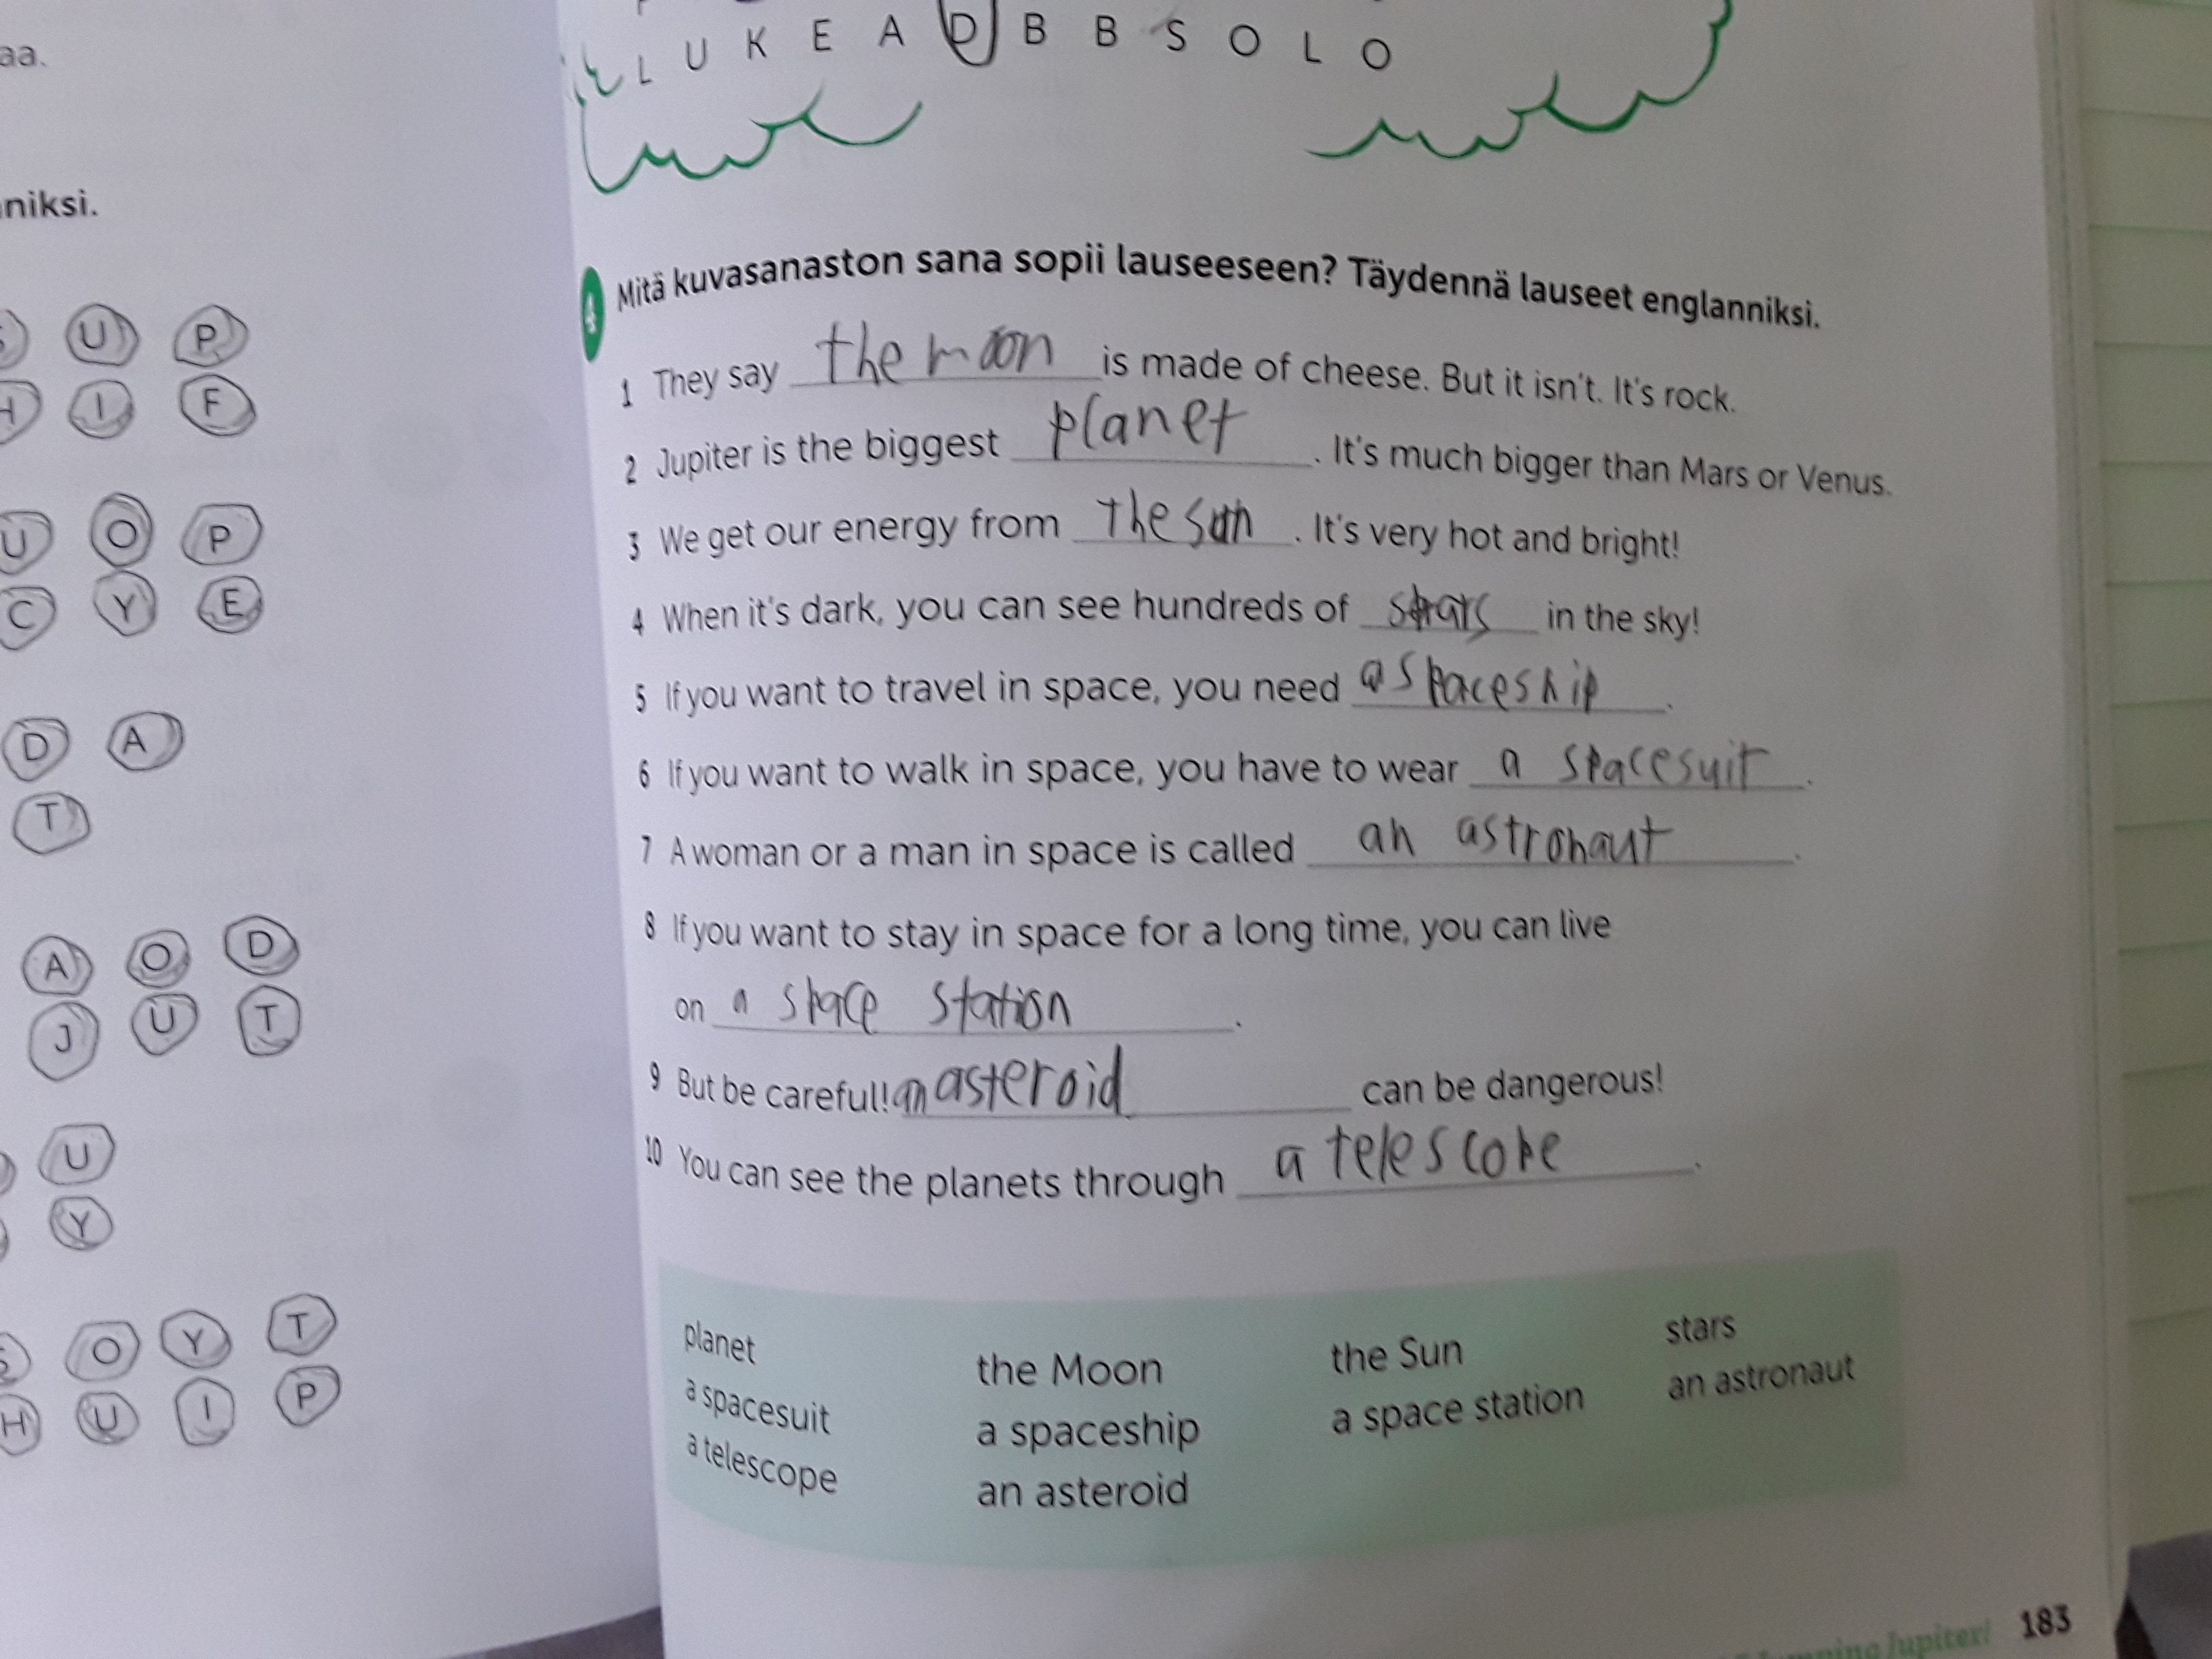 aa.
niksi.
U P
H I F
U O P
C Y E
D A
T
A O D
J U T
U
Y
S O Y T
H U I P
L U K E A D B B S O L O
4 Mitä kuvasanaston sana sopii lauseeseen? Täydennä lauseet englanniksi.
1 They say the moon is made of cheese. But it isn't. It's rock.
2 Jupiter is the biggest planet. It's much bigger than Mars or Venus.
3 We get our energy from the sun. It's very hot and bright!
4 When it's dark, you can see hundreds of stars in the sky!
5 If you want to travel in space, you need a spaceship.
6 If you want to walk in space, you have to wear a spacesuit.
7 A woman or a man in space is called an astronaut.
8 If you want to stay in space for a long time, you can live
on a space station.
9 But be careful! an asteroid can be dangerous!
10 You can see the planets through a telescope.
planet the Moon the Sun stars
a spacesuit a spaceship a space station an astronaut
a telescope an asteroid
Jupiter! 183